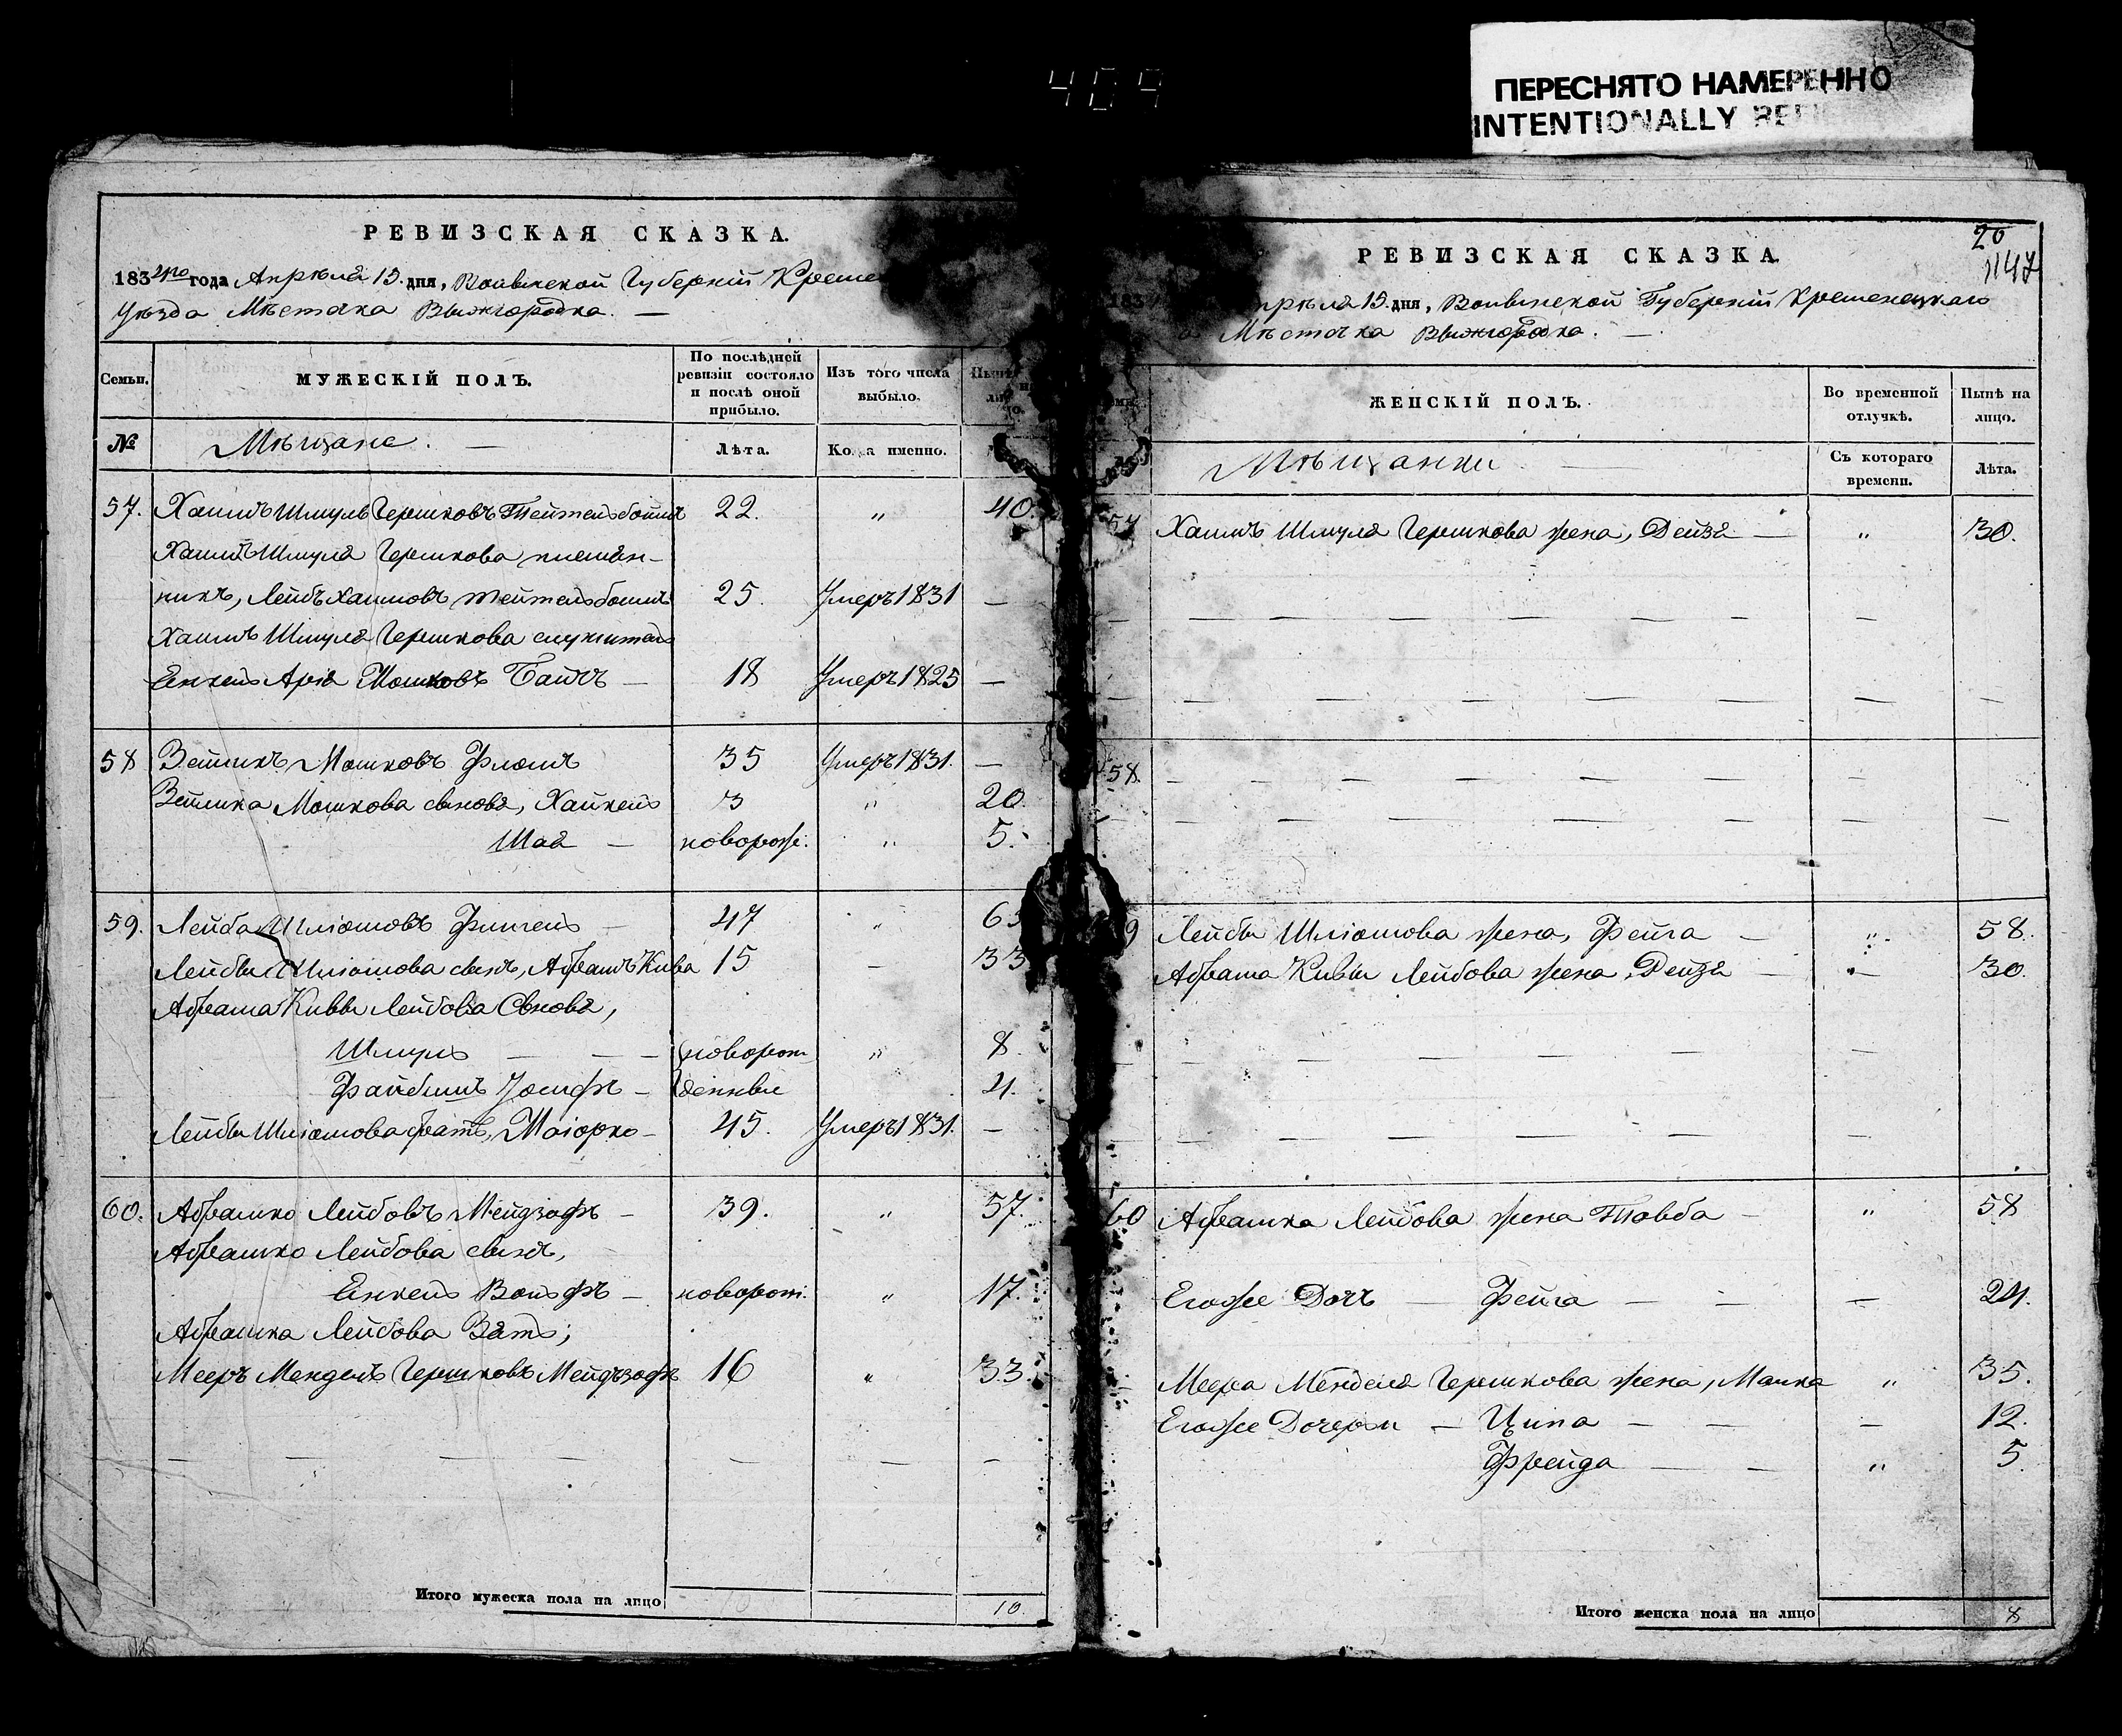 409
ПЕРЕСНЯТО НАМЕРЕННО
INTENTIONALLY
РЕВИЗСКАЯ СКАЗКА.
183 года Апрѣля 15. дня, Волынской Губерніи
Уѣзда Мѣстечка Вышгородка. —
Семьи.
МУЖЕСКІЙ ПОЛЪ.
По послѣдней ревизіи состояло и послѣ оной прибыло.
Изъ того числа выбыло.
№
Мѣщане. —
Лѣта.
Когда именно.
57. Хаимъ Шмуль Гершковъ Тейтельбоимъ 22. „ 40
Хаимъ Шмуля Гершкова племян-
никъ, Лейбъ Хаимовъ Тейтельбоимъ 25. Умеръ 1831 —
Хаимъ Шмуля Гершкова служитель
Енкель Арія Мошковъ — 18 Умеръ 1825 —
58 Зейликъ Мошковъ Фломъ 35 Умеръ 1831. —
Зейлика Мошкова сыновя, Хайкель 3 „ 20.
Шая — новорож: „ 5.
59. Лейба Шліомовъ Фингель — 47 „
Лейбы Шліомова сынъ, Абрамъ Кива 15 — 33
Абрама Кивы Лейбова Сыновя,
Шмуль — — — новорож „ 8.
Файбишъ Іосифъ — денные 4.
Лейбы Шліомова братъ, Маіорко — 45. Умеръ 1831. —
60. Абрашко Лейбовъ Мейдзофъ — 39. „ 57.
Абрашко Лейбова сынъ,
Енкель Вольфъ — новорож: „ 17.
Абрашка Лейбова Зять;
Мееръ Мендель Гершковъ Мейдзофъ 16 „ 33.
Итого мужеска пола на лицо 10.
20
1147
РЕВИЗСКАЯ СКАЗКА.
Апрѣля 15. дня, Волынской Губерніи Кременецкаго
Мѣстечка Вышгородка. —
ЖЕНСКІЙ ПОЛЪ.
Во временной отлучкѣ.
Нынѣ на лицо.
Мѣщанки —
Съ котораго времени.
Лѣта.
57 Хаимъ Шмуля Гершкова жена, Дейзя — „ 30.
58.
Лейбы Шліомова жена, Фейга — „ 58.
Абрама Кивы Лейбова жена, Дейзя — 30.
60 Абрашка Лейбова жена Товба — „ 58
Егоже Дочь — Фейга — — — 24.
Меера Менделя Гершкова жена, Малка „ 35.
Егоже Дочери — Ципа — — — 12.
Фрейда — — „ 5.
Итого женска пола на лицо 8